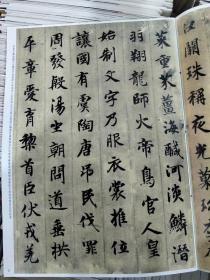 巨闕珠稱夜光菓
菜重芥薑海鹹河淡鱗潛
羽翔龍師火帝鳥官人皇
始制文字乃服衣裳推位
讓國有虞陶唐弔民伐罪
周發殷湯坐朝問道垂拱
平章愛育黎首臣伏戎羌